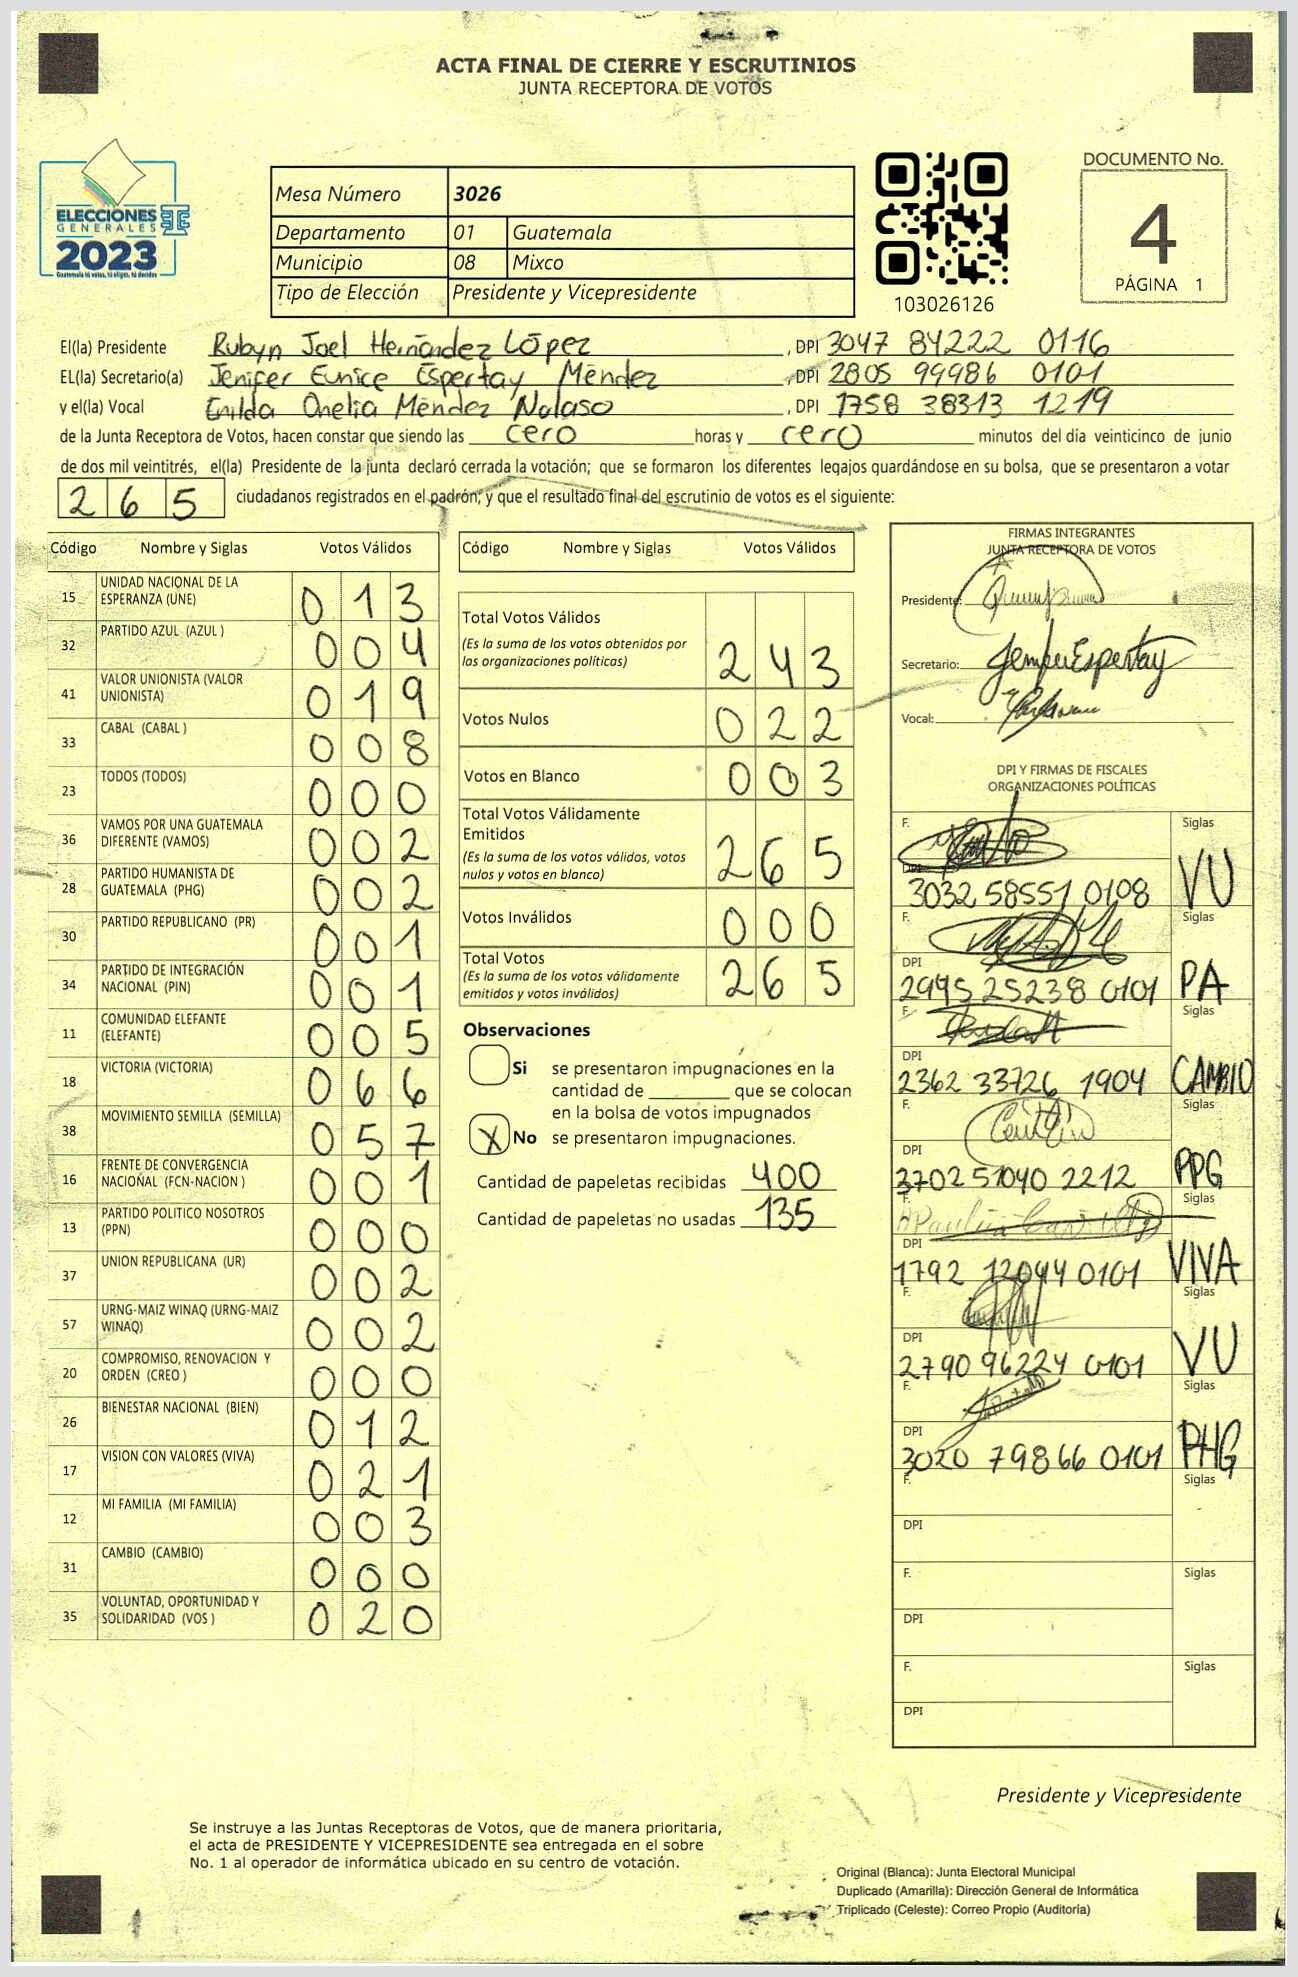 ACTA FINAL DE CIERRE Y ESCRUTINIOS
JUNTA RECEPTORA DE VOTOS
ELECCIONES
GENERALES
2023
Guatemala tú votas, tú eliges, tú decides
Mesa Número 3026
Departamento 01 Guatemala
Municipio 08 Mixco
Tipo de Elección Presidente y Vicepresidente
103026126
DOCUMENTO No.
4
PÁGINA 1
El(la) Presidente Rubyn Joel Hernández López, DPI 3047 84222 0116
EL(la) Secretario(a) Jenifer Eunice Espertay Méndez, DPI 2805 99986 0101
y el(la) Vocal Enilda Onelia Méndez Nolaso, DPI 1758 38313 1219
de la Junta Receptora de Votos, hacen constar que siendo las cero horas y cero minutos del día veinticinco de junio
de dos mil veintitrés, el(la) Presidente de la junta declaró cerrada la votación; que se formaron los diferentes legajos guardándose en su bolsa, que se presentaron a votar
265 ciudadanos registrados en el padrón; y que el resultado final del escrutinio de votos es el siguiente:
Código Nombre y Siglas Votos Válidos
15 UNIDAD NACIONAL DE LA ESPERANZA (UNE) 013
32 PARTIDO AZUL (AZUL ) 004
41 VALOR UNIONISTA (VALOR UNIONISTA) 019
33 CABAL (CABAL ) 008
23 TODOS (TODOS) 000
36 VAMOS POR UNA GUATEMALA DIFERENTE (VAMOS) 002
28 PARTIDO HUMANISTA DE GUATEMALA (PHG) 002
30 PARTIDO REPUBLICANO (PR) 001
34 PARTIDO DE INTEGRACIÓN NACIONAL (PIN) 001
11 COMUNIDAD ELEFANTE (ELEFANTE) 005
18 VICTORIA (VICTORIA) 066
38 MOVIMIENTO SEMILLA (SEMILLA) 057
16 FRENTE DE CONVERGENCIA NACIONAL (FCN-NACION ) 001
13 PARTIDO POLITICO NOSOTROS (PPN) 000
37 UNION REPUBLICANA (UR) 002
57 URNG-MAIZ WINAQ (URNG-MAIZ WINAQ) 002
20 COMPROMISO, RENOVACION Y ORDEN (CREO ) 000
26 BIENESTAR NACIONAL (BIEN) 012
17 VISION CON VALORES (VIVA) 021
12 MI FAMILIA (MI FAMILIA) 003
31 CAMBIO (CAMBIO) 000
35 VOLUNTAD, OPORTUNIDAD Y SOLIDARIDAD (VOS ) 020
Código Nombre y Siglas Votos Válidos
Total Votos Válidos 243
(Es la suma de los votos obtenidos por
las organizaciones políticas)
Votos Nulos 022
Votos en Blanco 003
Total Votos Válidamente
Emitidos 265
(Es la suma de los votos válidos, votos
nulos y votos en blanco)
Votos Inválidos 000
Total Votos 265
(Es la suma de los votos válidamente
emitidos y votos inválidos)
Observaciones
Si se presentaron impugnaciones en la
cantidad de ________ que se colocan
en la bolsa de votos impugnados
X No se presentaron impugnaciones.
Cantidad de papeletas recibidas 400
Cantidad de papeletas no usadas 135
FIRMAS INTEGRANTES
JUNTA RECEPTORA DE VOTOS
Presidente:
Secretario: Jenifer Espertay
Vocal:
DPI Y FIRMAS DE FISCALES
ORGANIZACIONES POLÍTICAS
F. Siglas
DPI 3032 58551 0108 VU
F. Siglas
DPI 2995 25238 0101 PA
F. Siglas
DPI 2362 33726 1904 CAMBIO
F. Siglas
DPI 3702 51040 2212 PPG
F. Siglas
DPI 1792 12044 0101 VIVA
F. Siglas
DPI 2790 96224 0101 VU
F. Siglas
DPI 3020 79866 0101 PHG
F. Siglas
DPI
F. Siglas
DPI
F. Siglas
DPI
Presidente y Vicepresidente
Se instruye a las Juntas Receptoras de Votos, que de manera prioritaria,
el acta de PRESIDENTE Y VICEPRESIDENTE sea entregada en el sobre
No. 1 al operador de informática ubicado en su centro de votación.
Original (Blanca): Junta Electoral Municipal
Duplicado (Amarilla): Dirección General de Informática
Triplicado (Celeste): Correo Propio (Auditoría)